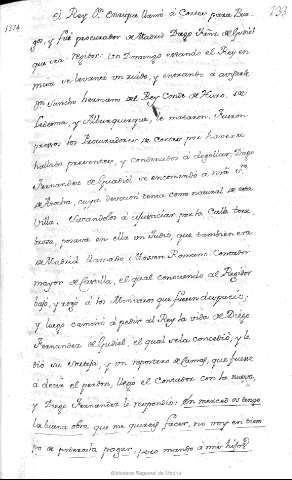 133
1374.
El Rey Dn. Enrique llamó á Cortes para Bur-
gos, y fué procurador de Madrid Diego Frnz. de Gudiel
que era regidor: Un Domingo estando el Rey en
misa se levantó un ruido, y entrando á
Sancho hermano del Rey Conde de
Ledesma, y Alburquerque, le mataron. Fueron
presos los Procuradores de Cortes por haverse
hallado presentes, y conducidos á degollar, Diego
Fernandez de Gudiel se encomendó á nrã Sª.
de Atocha, cuya devocion tenia como natural de esta
Villa. Sacandolos á ajusticiar por la Calle
posava en ella un Judio, que tambien era
de Madrid llamado Mosen Romano Contador
mayor de Castilla, el qual conociendo al Regidor
bajó, y rogó á los Monteros que fuesen despacio;
y luego caminó á pedir al Rey la vida de Diego
Fernandez de Gudiel, el qual se la concedió, y le
dió su sortija, y un repostero de camas, que fuese
á decir el perdon, llegó el Contador con la nueva,
y Diego Fernandez le respondió: En merced os tengo
la buena obra que me quereis facer, no voy en tiem
po de poderosla pagar, pero mando á mis hijos
Biblioteca Regional de Madrid